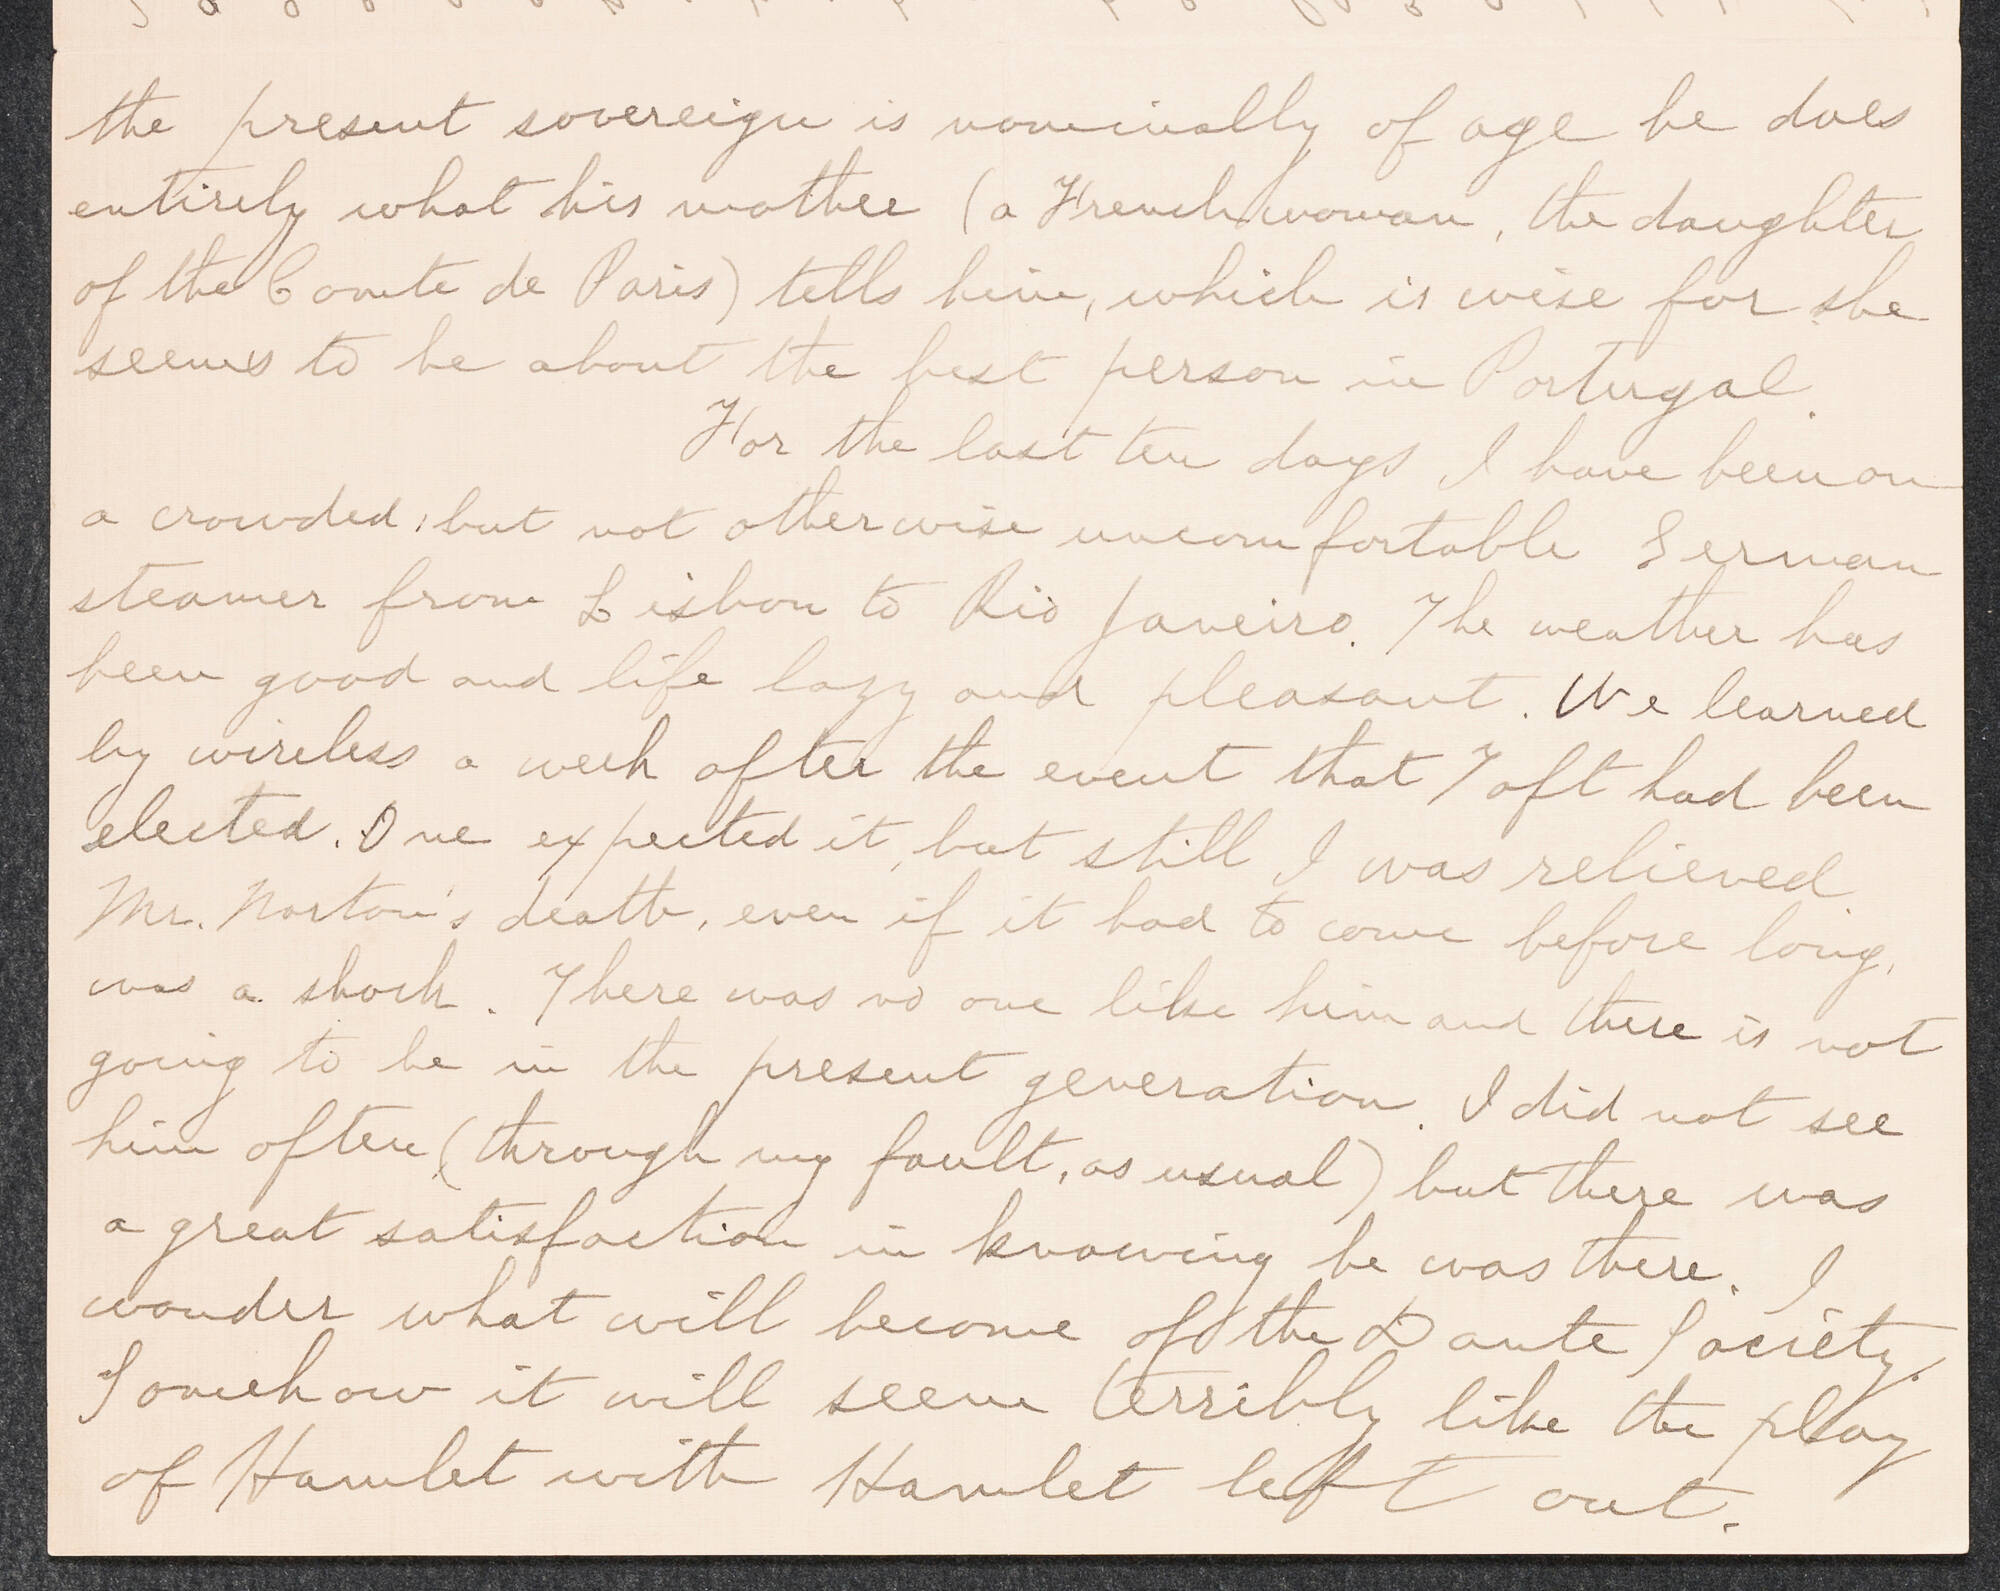 the present sovereign is nominally of age he does
entirely what his mother (a Frenchwoman, the daughter
of the Comte de Paris) tells him, which is wise for she
seems to be about the best person in Portugal.
For the last ten days I have been on
a crowded, but not otherwise uncomfortable German
steamer from Lisbon to Rio Janeiro. The weather has
been good and life lazy and pleasant. We learned
by wireless a week after the event that Taft had been
elected. One expected it, but still I was relieved.
Mr. Norton's death, even if it had to come before long,
was a shock. There was no one like him and there is not
going to be in the present generation. I did not see
him often (through my fault, as usual) but there was
a great satisfaction in knowing he was there. I
wonder what will become of the Dante Society.
Somehow it will seem terribly like the play
of Hamlet with Hamlet left out.